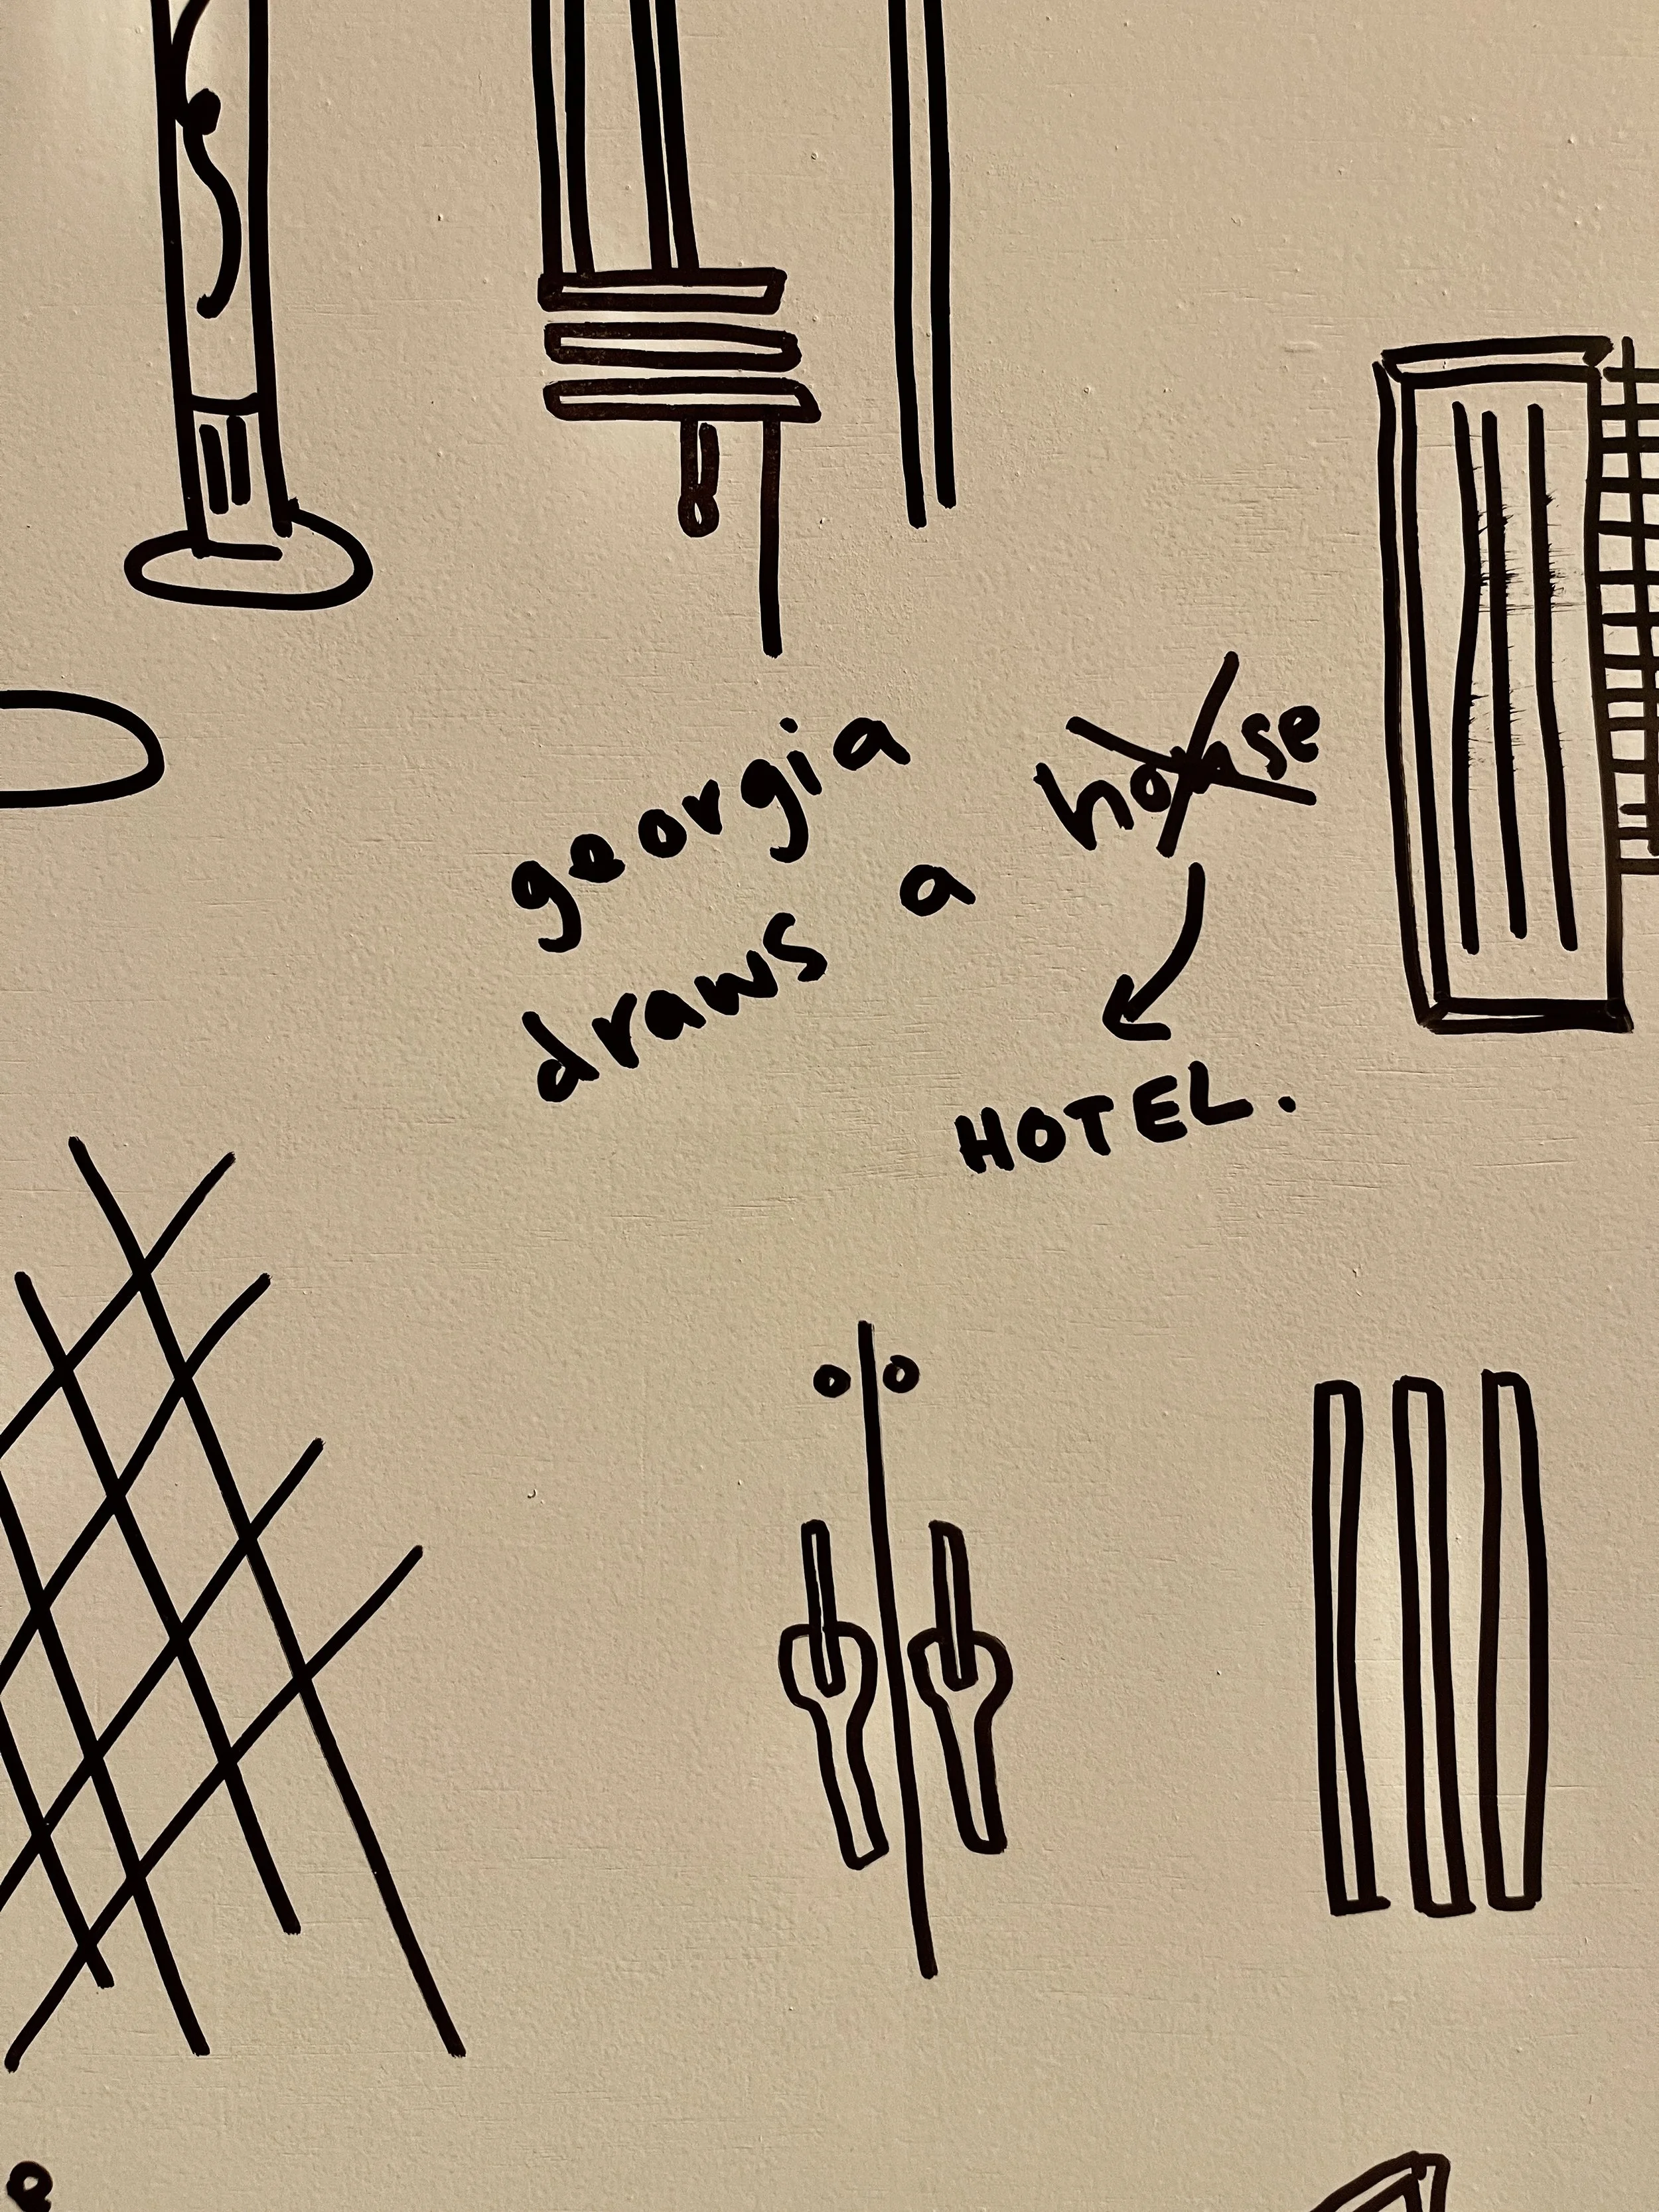 georgia
draws a house
HOTEL.